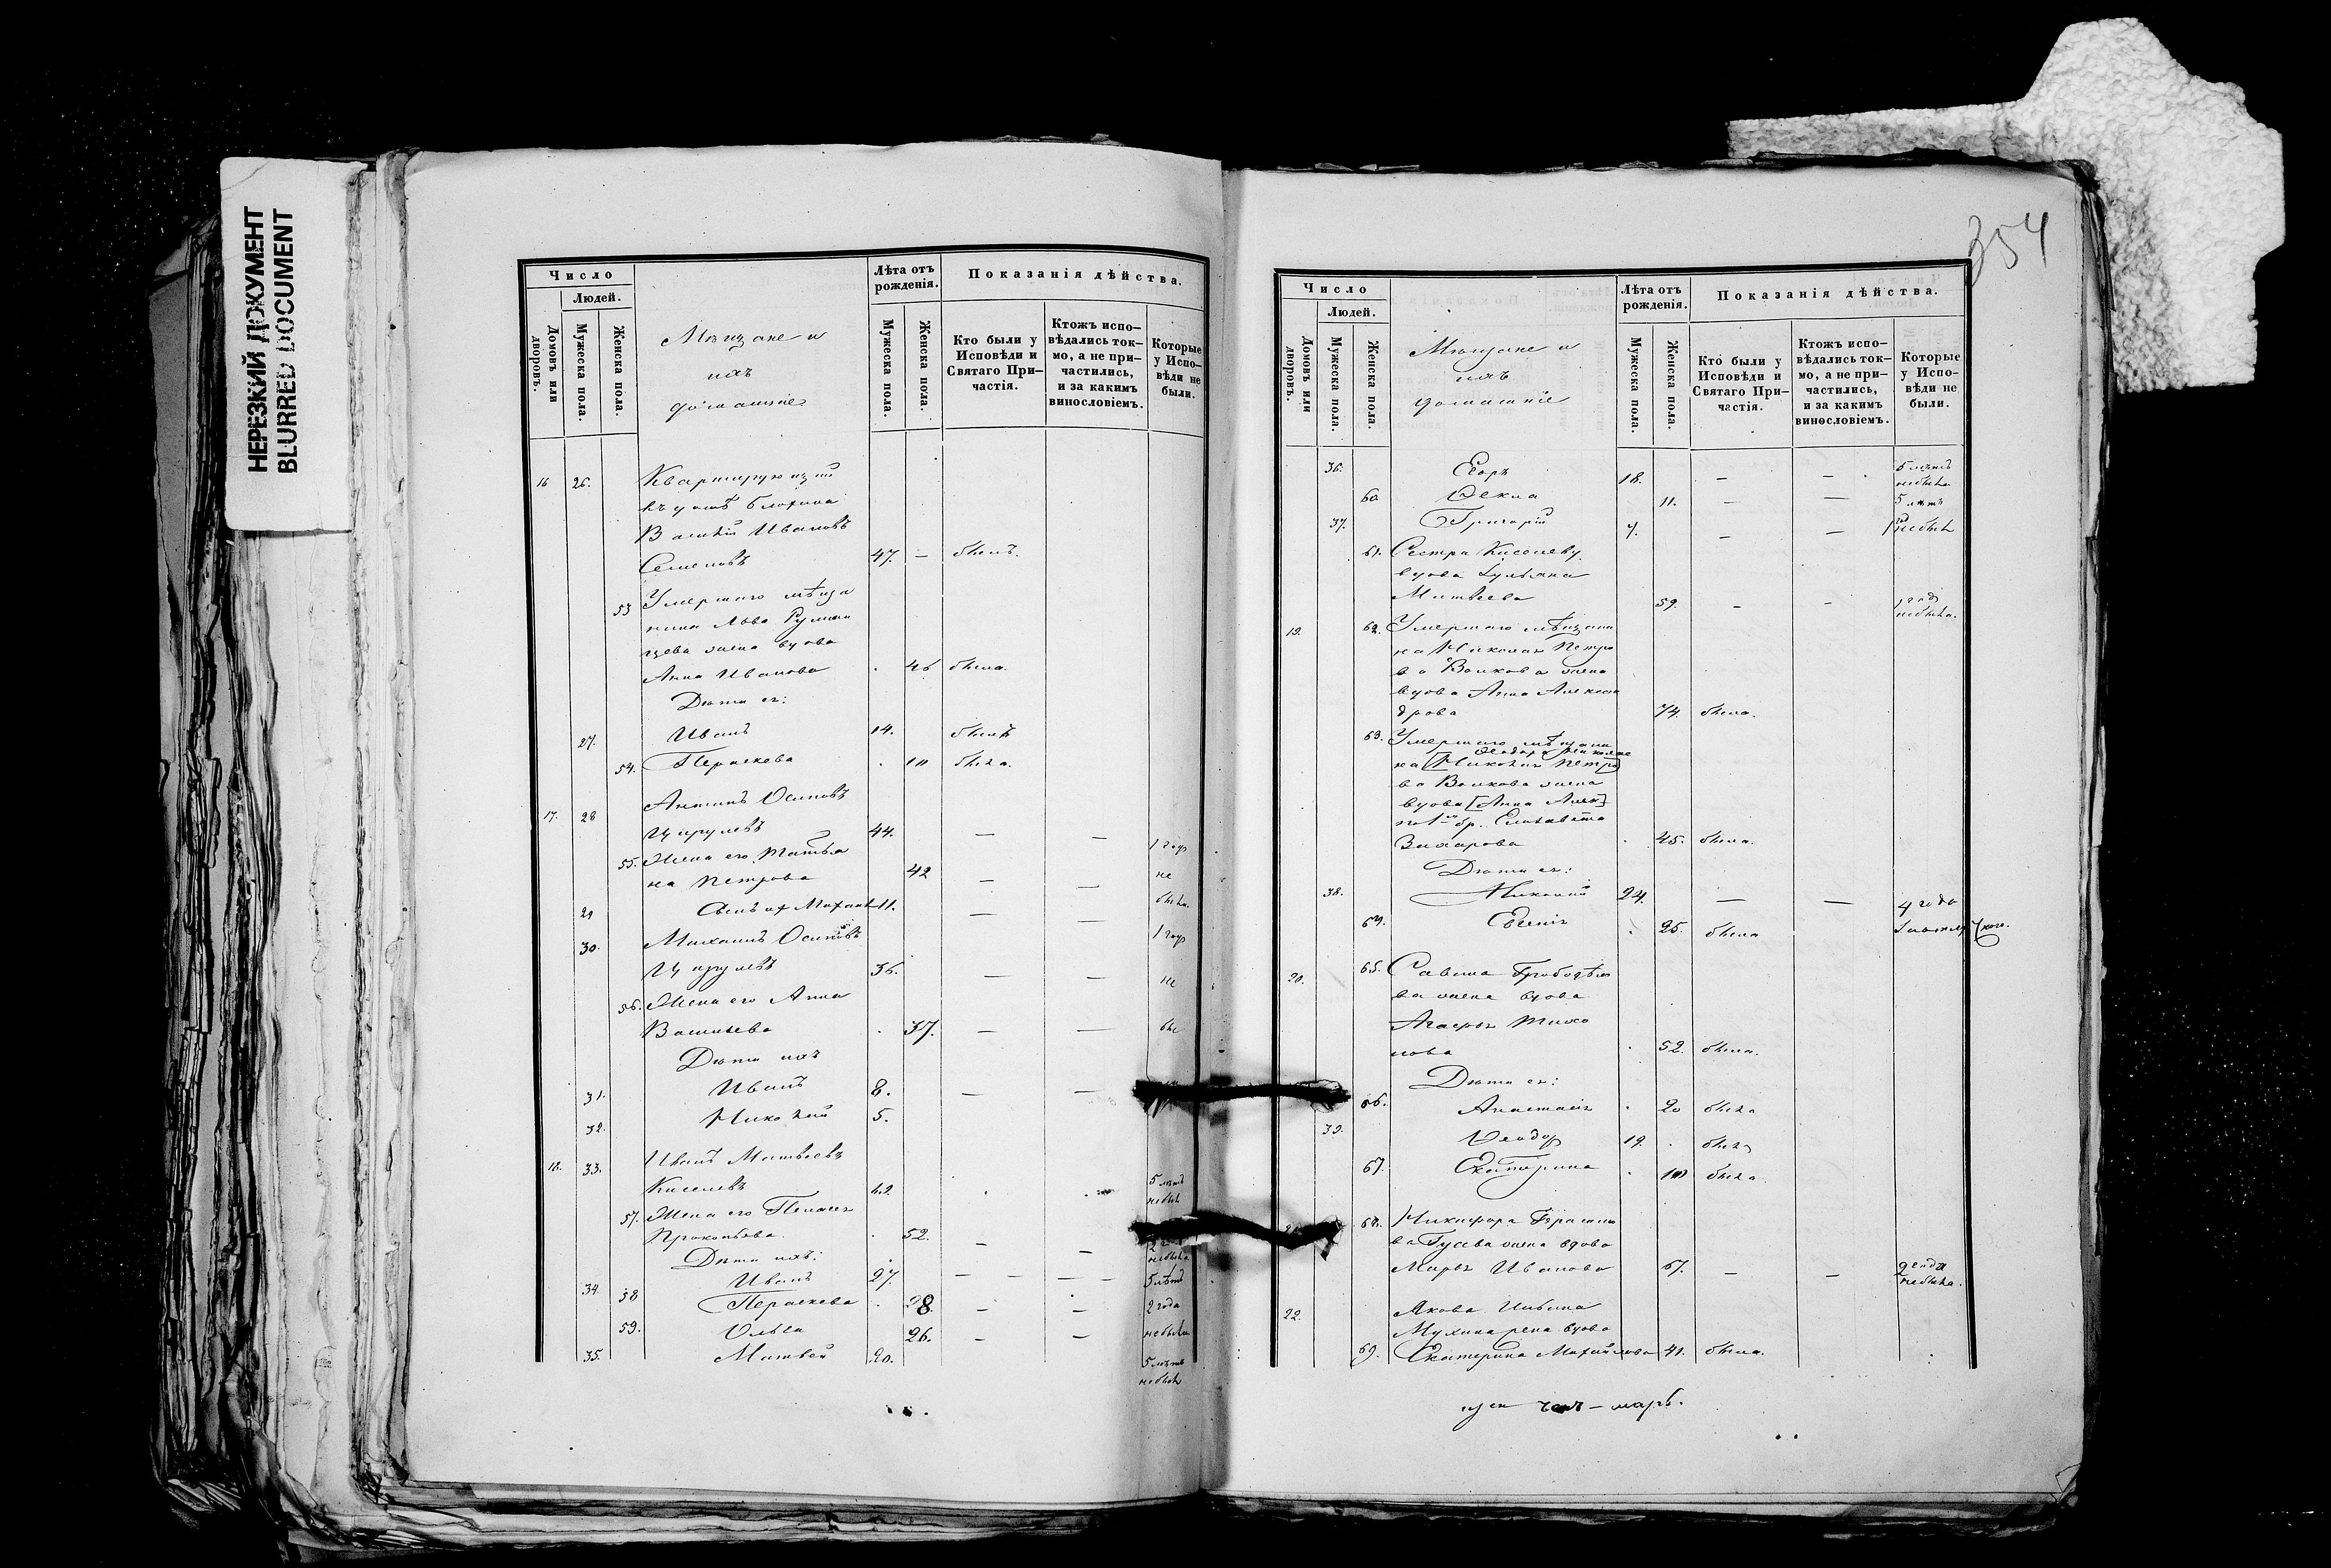 НЕРЕЗКИЙ ДОКУМЕНТ
BLURRED DOCUMENT
Число
Людей.
Домовъ или дворовъ.
Мужеска пола.
Женска пола.
Мѣщане и
ихъ
домашніе
Лѣта отъ рожденія.
Мужеска пола.
Женска пола.
Показанія дѣйства.
Кто были у Исповѣди и Святаго При-частія.
Ктожъ испо-вѣдались ток-мо, а не при-частились, и за какимъ винословіемъ.
Которые у Испо-вѣди не были.
16 26. Квартирующій
въ домѣ Блохина
Василій Ивановъ
Семеновъ 47. — былъ.
53 Умершаго мѣща
нина Льва Румян
цева жена вдова
Анна Иванова . 46 была.
Дѣти ея:
27. Иванъ 14. былъ
54. Параскева . 10 была.
17. 28 Антипъ Осиповъ
44. — — 1 годъ
55. Жена его Татья
на Петрова 42 — — не
29 Сынъ их Михаилъ 11. — — была.
30. Михаилъ Осиповъ 1 годъ
36. — — не
56. Жена его Анна
Васильева . 37. — — бы
Дѣти ихъ
31. Иванъ 8. — —
32. Николай 5.
18. 33. Иванъ Матвѣевъ
Киселевъ 5 лѣтъ
не был
57. Жена его Пелагея
Прокопьева. . 52. — —
не была
Дѣти ихъ:
34. Иванъ 27. — — — — 5 лѣтъ
58 Параскева . 28. — — 2 года
59. Ольга 26. — — не была
35. Матвей 20. 5 лѣтъ
не былъ
354
Число
Людей.
Домовъ или дворовъ.
Мужеска пола.
Женска пола.
Мѣщане и
ихъ
домашніе
Лѣта отъ рожденія.
Мужеска пола.
Женска пола.
Показанія дѣйства.
Кто были у Исповѣди и Святаго При-частія.
Ктожъ испо-вѣдались ток-мо, а не при-частились, и за какимъ винословіемъ.
Которые у Испо-вѣди не были.
36. Егоръ 18. — — 5 лѣтъ
не был
60 Ѳекла 11. — — 5 лѣтъ
37. Григорій 7. — — не был
61. Сестра Киселеву
вдова Іульяна
Матвѣева 59. — — 1 годъ
не была.
19. 62. Умершаго мѣщани
на Николая Петро
ва Волкова жена
вдова Анна Алексан
дрова 74. была.
63. Умершаго мѣщани
Ѳеодора Николае
на [Николая Петро]
ва Волкова жена
вдова [Анна Алек]
по 1му бр. Елизавета
Захарова . 45. была.
Дѣти ея:
38. Николай 24. — — 4 года
64. Евгенія . 25. была
20. 65. Савина Грободѣло
ва жена вдова
Агафья Тихо
нова . 52. была.
Дѣти ея:
66. Анастасія . 20 была
39. Ѳеодор 19. . былъ
67. Екатерина . 10 была.
68. Никифора Герасимо
ва Гусева жена вдова
Марья Иванова 67. — — 2 года
не была.
22. Якова Ильина
Мухина жена вдова
69. Екатерина Михайлова 41. была.